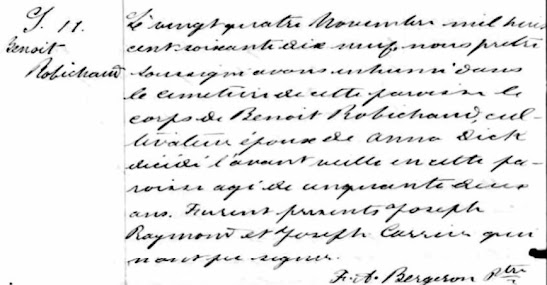 S. 11.
Benoit
Robichaud
Le vingt quatre Novembre mil huit
cent soixante dix neuf, nous prêtre
soussigné avons inhumé dans
le cimetière de cette paroisse le
corps de Benoit Robichaud, cul-
tivateur époux de Anna Dick
décédé l'avant veille en cette pa-
roisse agé de cinquante deux
ans. Furent présents Joseph
Raymond et Joseph Carrier qui
n'ont pu signer.
F. A. Bergeron Ptre